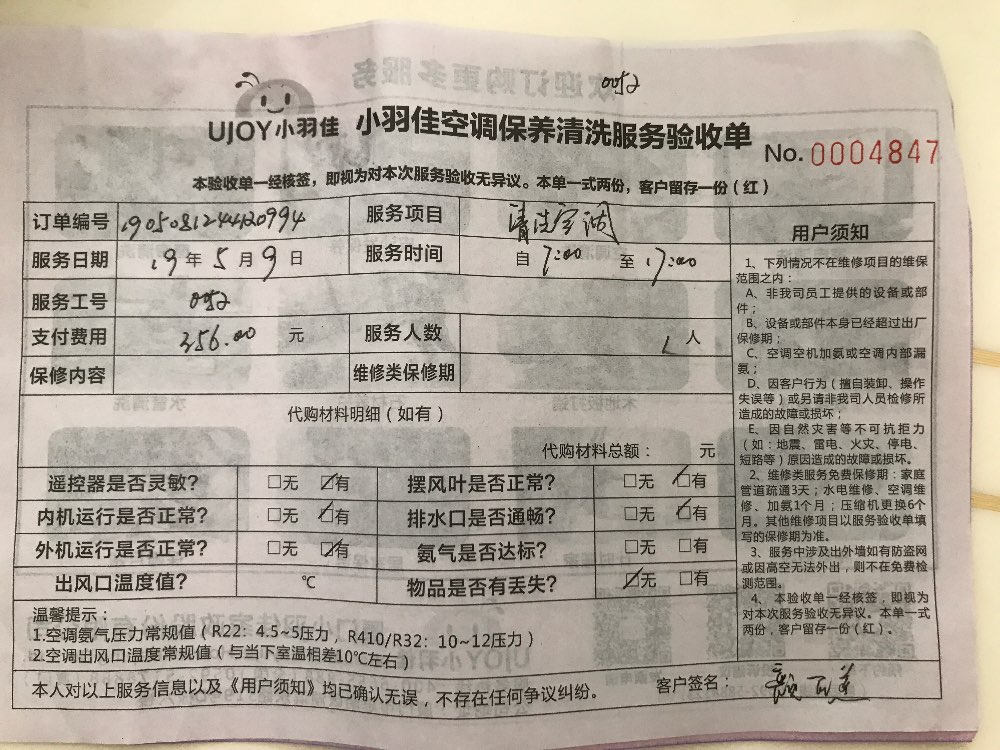 0052
UJOY小羽佳 小羽佳空调保养清洗服务验收单
No. 0004847
本验收单一经核签，即视为对本次服务验收无异议。本单一式两份，客户留存一份（红）
订单编号 190508124420994 服务项目 清洗空调
服务日期 19年5月9日 服务时间 自 7:00 至 17:00
服务工号 0052
支付费用 356.00 元 服务人数 人
保修内容 维修类保修期
代购材料明细（如有）
代购材料总额： 元
遥控器是否灵敏？ □无 ☑有 摆风叶是否正常？ □无 ☑有
内机运行是否正常？ □无 ☑有 排水口是否通畅？ □无 ☑有
外机运行是否正常？ □无 ☑有 氨气是否达标？ □无 □有
出风口温度值？ ℃ 物品是否有丢失？ ☑无 □有
温馨提示：
1.空调氨气压力常规值（R22：4.5~5压力，R410/R32：10~12压力）
2.空调出风口温度常规值（与当下室温相差10℃左右）
本人对以上服务信息以及《用户须知》均已确认无误，不存在任何争议纠纷。
客户签名：
用户须知
1、下列情况不在维修项目的维保
范围之内：
A、非我司员工提供的设备或部
件；
B、设备或部件本身已经超过出厂
保修期；
C、空调空机加氨或空调内部漏
氨；
D、因客户行为（擅自装卸、操作
失误等）或另请非我司人员检修所
造成的故障或损坏；
E、因自然灾害等不可抗拒力
（如：地震、雷电、火灾、停电、
短路等）原因造成的故障或损坏。
2、维修类服务免费保修期：家庭
管道疏通3天；水电维修、空调维
修、加氨1个月；压缩机更换6个
月。其他维修项目以服务验收单填
写的保修期为准。
3、服务中涉及出外墙如有防盗网
或因高空无法外出，则不在免费检
测范围。
4、本验收单一经核签，即视为
对本次服务验收无异议。本单一式
两份，客户留存一份（红）。